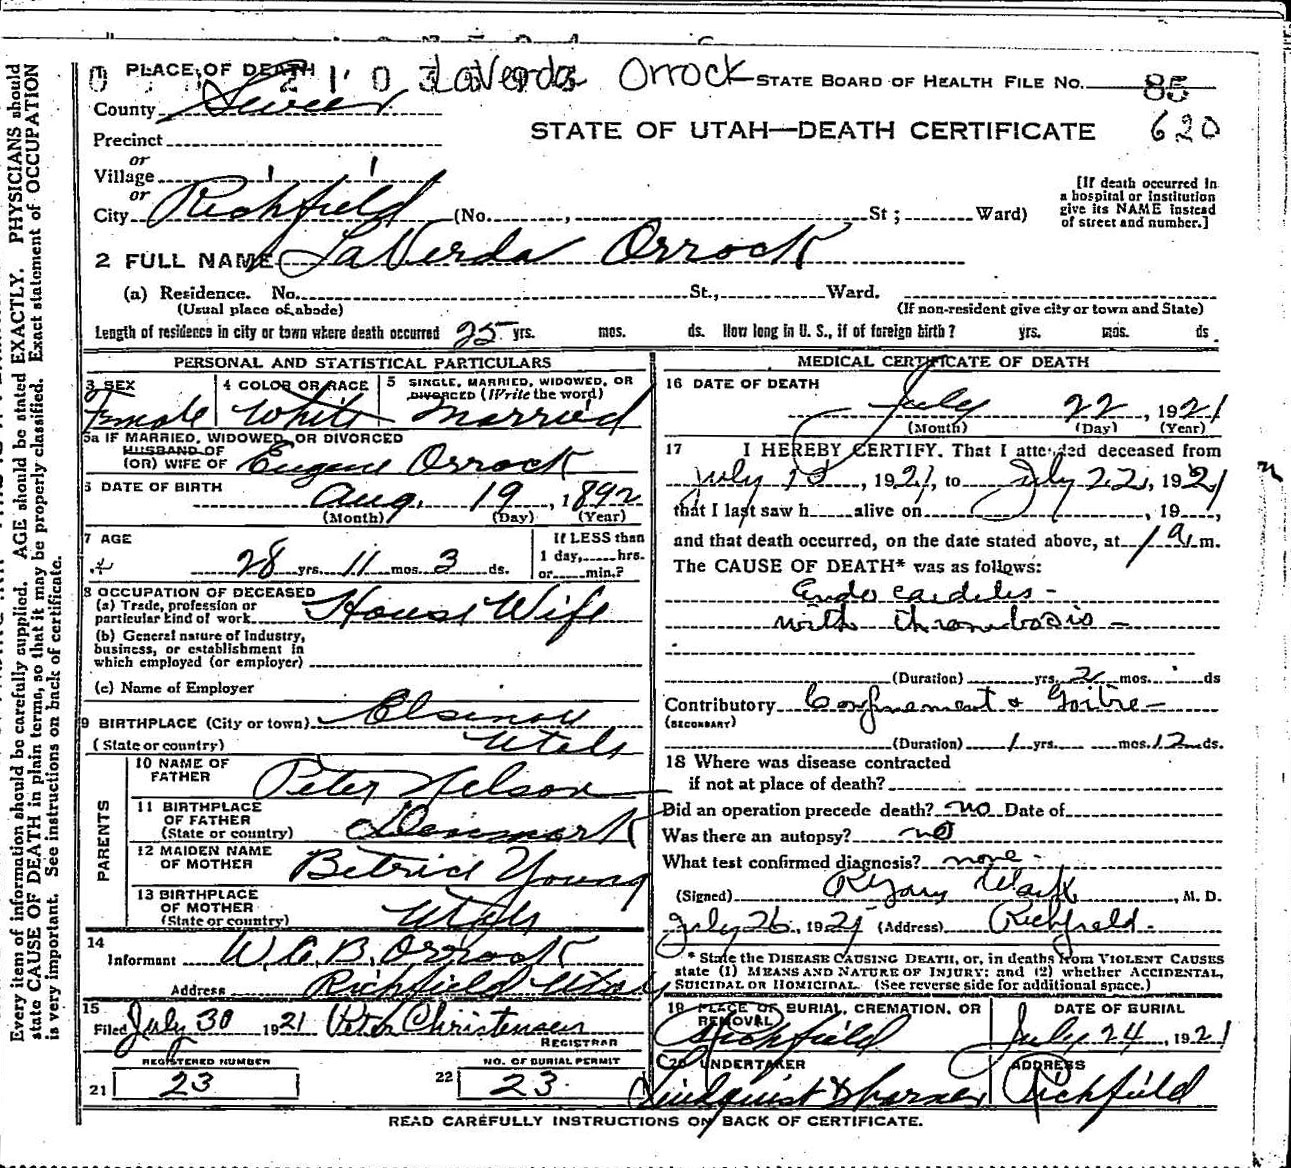 PLACE OF DEATH LaVerda Orrock STATE BOARD OF HEALTH FILE NO. 85
County Sevier
STATE OF UTAH—DEATH CERTIFICATE 620
Precinct
or
Village
or
City Richfield (No. , St; Ward)
[If death occurred in a hospital or institution give its NAME instead of street and number.]
2 FULL NAME LaVerda Orrock
(a) Residence. No. St., Ward.
(Usual place of abode) (If non-resident give city or town and State)
Length of residence in city or town where death occurred 25 yrs. mos. ds. How long in U. S., if of foreign birth? yrs. mos. ds.
PERSONAL AND STATISTICAL PARTICULARS
3 SEX 4 COLOR OR RACE 5 SINGLE, MARRIED, WIDOWED, OR
DIVORCED (Write the word)
Female White Married
5a IF MARRIED, WIDOWED, OR DIVORCED
HUSBAND OF
(OR) WIFE OF Eugene Orrock
6 DATE OF BIRTH Aug. 19, 1892
(Month) (Day) (Year)
7 AGE If LESS than
28 yrs. 11 mos. 3 ds. 1 day, hrs.
or min.?
8 OCCUPATION OF DECEASED
(a) Trade, profession or
particular kind of work House Wife
(b) General nature of industry,
business, or establishment in
which employed (or employer)
(c) Name of Employer
9 BIRTHPLACE (City or town) Elsinore
(State or country) Utah
PARENTS
10 NAME OF
FATHER Peter Nelson
11 BIRTHPLACE
OF FATHER
(State or country) Denmark
12 MAIDEN NAME
OF MOTHER Betrid Young
13 BIRTHPLACE
OF MOTHER
(State or country) Utah
14
Informant W.A.B. Orrock
Address Richfield Utah
15
Filed July 30 1921 Peter Christensen
REGISTRAR
REGISTERED NUMBER NO. OF BURIAL PERMIT
21 23 22 23
MEDICAL CERTIFICATE OF DEATH
16 DATE OF DEATH
July 22, 1921
(Month) (Day) (Year)
17 I HEREBY CERTIFY. That I attended deceased from
July , 1921, to July 22, 1921
that I last saw h alive on , 19 ,
and that death occurred, on the date stated above, at 1 a.m.
The CAUSE OF DEATH* was as follows:
Endocarditis -
with thrombosis -
(Duration) yrs. 2 mos. ds
Contributory Confinement & Goitre -
(SECONDARY)
(Duration) 1 yrs. mos. 12 ds.
18 Where was disease contracted
if not at place of death?
Did an operation precede death? no Date of
Was there an autopsy? no
What test confirmed diagnosis? none -
(Signed) , M. D.
July 26, 1921 (Address) Richfield.
* State the DISEASE CAUSING DEATH, or, in deaths from VIOLENT CAUSES
state (1) MEANS AND NATURE OF INJURY; and (2) whether ACCIDENTAL,
SUICIDAL OR HOMICIDAL. (See reverse side for additional space.)
19 PLACE OF BURIAL, CREMATION, OR DATE OF BURIAL
REMOVAL
Richfield July 24, 1921
20 UNDERTAKER ADDRESS
Lindquist & Richfield
READ CAREFULLY INSTRUCTIONS ON BACK OF CERTIFICATE.
Every item of information should be carefully supplied. AGE should be stated EXACTLY. PHYSICIANS should
state CAUSE OF DEATH in plain terms, so that it may be properly classified. Exact statement of OCCUPATION
is very important. See instructions on back of certificate.